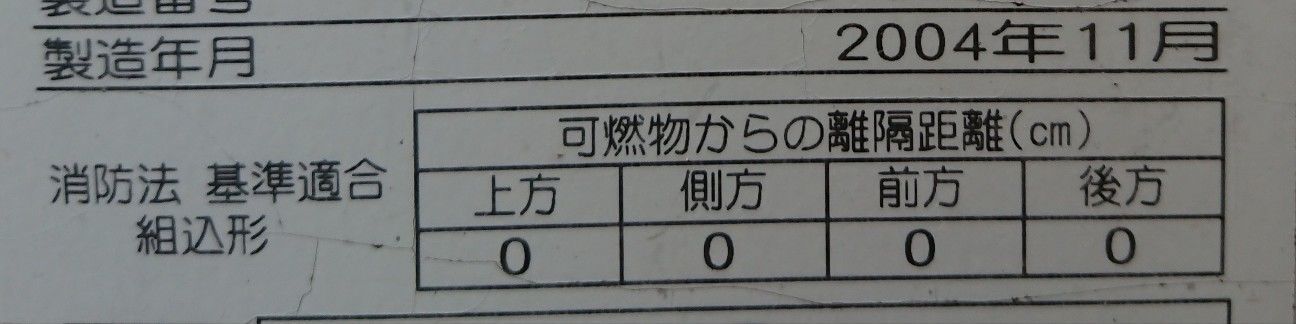 製造番号
製造年月 2004年11月
可燃物からの離隔距離(cm)
消防法 基準適合
組込形
上方 側方 前方 後方
0 0 0 0